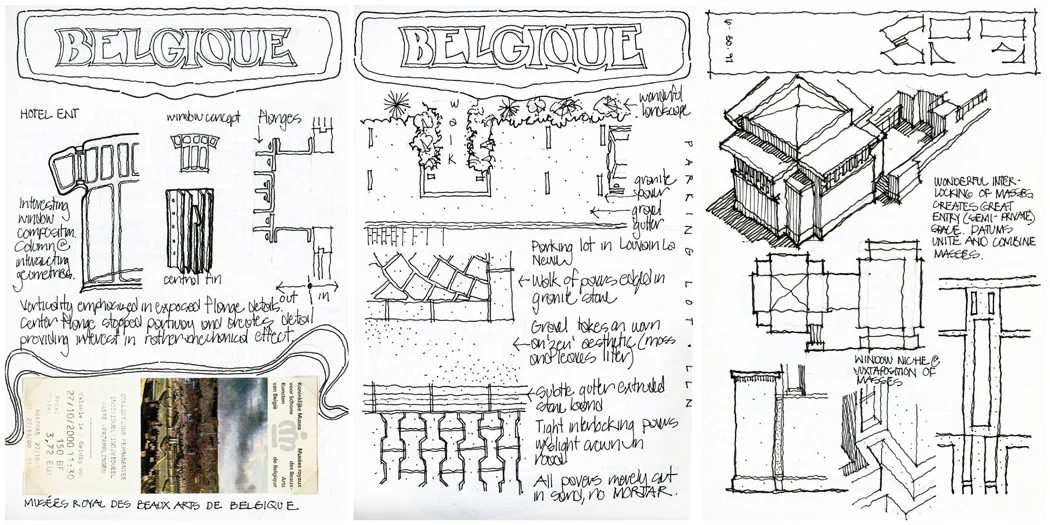 BELGIQUE
HOTEL ENT
window concept
Flanges
Interesting
window
composition.
Column @
interacting
geometries.
central fin
out
in
Verticality emphasized in exposed flange details.
center flange stopped partway and creates detail
providing interest in rather mechanical effect.
COLLECTIONS PERMANENTES
INDIVIDUEL
VASTE VERZAMELINGEN
27/10/2000 11:30
150 BF
3,72 EUR
Koninklijke Musea
voor Schone
Kunsten
van België
Musées royaux
des Beaux-
Arts
de Belgique
MUSÉES ROYAL DES BEAUX ARTS DE BELGIQUE
BELGIQUE
wonderful
landscape
WALK
granite
paver
gravel
gutter
PARKING LOT • LLN
Parking lot in Louvain La
Neuve
Walk of pavers edged in
granite stone
Gravel takes on worn
on 'zen' aesthetic (moss
and leaves litter)
Subtle gutter extruded
stone band
Tight interlocking pavers
w/slight crown in
road
All pavers merely cut
in sand, no MORTAR.
WONDERFUL INTER-
LOCKING OF MASSES
CREATES GREAT
ENTRY (SEMI-PRIVATE)
SPACE. DATUMS
UNITE AND COMBINE
MASSES.
WINDOW NICHE @
JUXTAPOSITION OF
MASSES